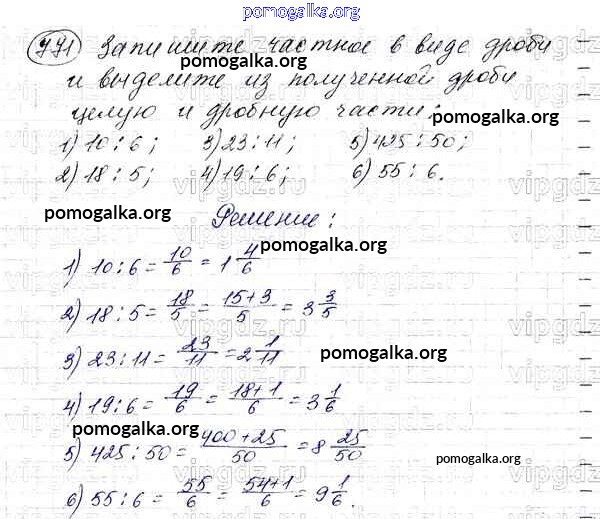 pomogalka.org
771 Запишите частное в виде дроби
и выделите из полученной дроби
целую и дробную части:
pomogalka.org
1) 10 : 6; 3) 23 : 11; 5) 425 : 50;
2) 18 : 5; 4) 19 : 6; 6) 55 : 6.
vipgdz.ru
pomogalka.org
Решение:
pomogalka.org
1) 10 : 6 = 10/6 = 1 4/6
2) 18 : 5 = 18/5 = 15+3/5 = 3 3/5
vipgdz.ru
3) 23 : 11 = 23/11 = 2 1/11
pomogalka.org
4) 19 : 6 = 19/6 = 18+1/6 = 3 1/6
pomogalka.org
5) 425 : 50 = 400+25/50 = 8 25/50
pomogalka.org
6) 55 : 6 = 55/6 = 54+1/6 = 9 1/6.